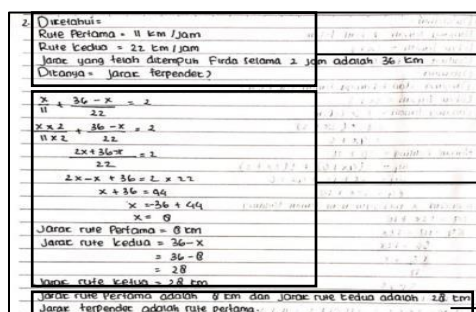 2. Diketahui =
Rute Pertama = 11 km / jam
Rute kedua = 22 km / jam
Jarak yang telah ditempuh Firda selama 2 jam adalah 36 km
Ditanya = jarak terpendek?
x/11 + 36 - x/22 = 2
x x 2/11 x 2 + 36 - x/22 = 2
2x + 36 - x/22 = 2
2x - x + 36 = 2 x 22
x + 36 = 44
x = -36 + 44
x = 8
Jarak rute Pertama = 8 km
Jarak rute kedua = 36 - x
= 36 - 8
= 28
Jarak rute kedua = 28 km
Jarak rute pertama adalah 8 km dan jarak rute kedua adalah 28 km
Jarak terpendek adalah rute pertama.